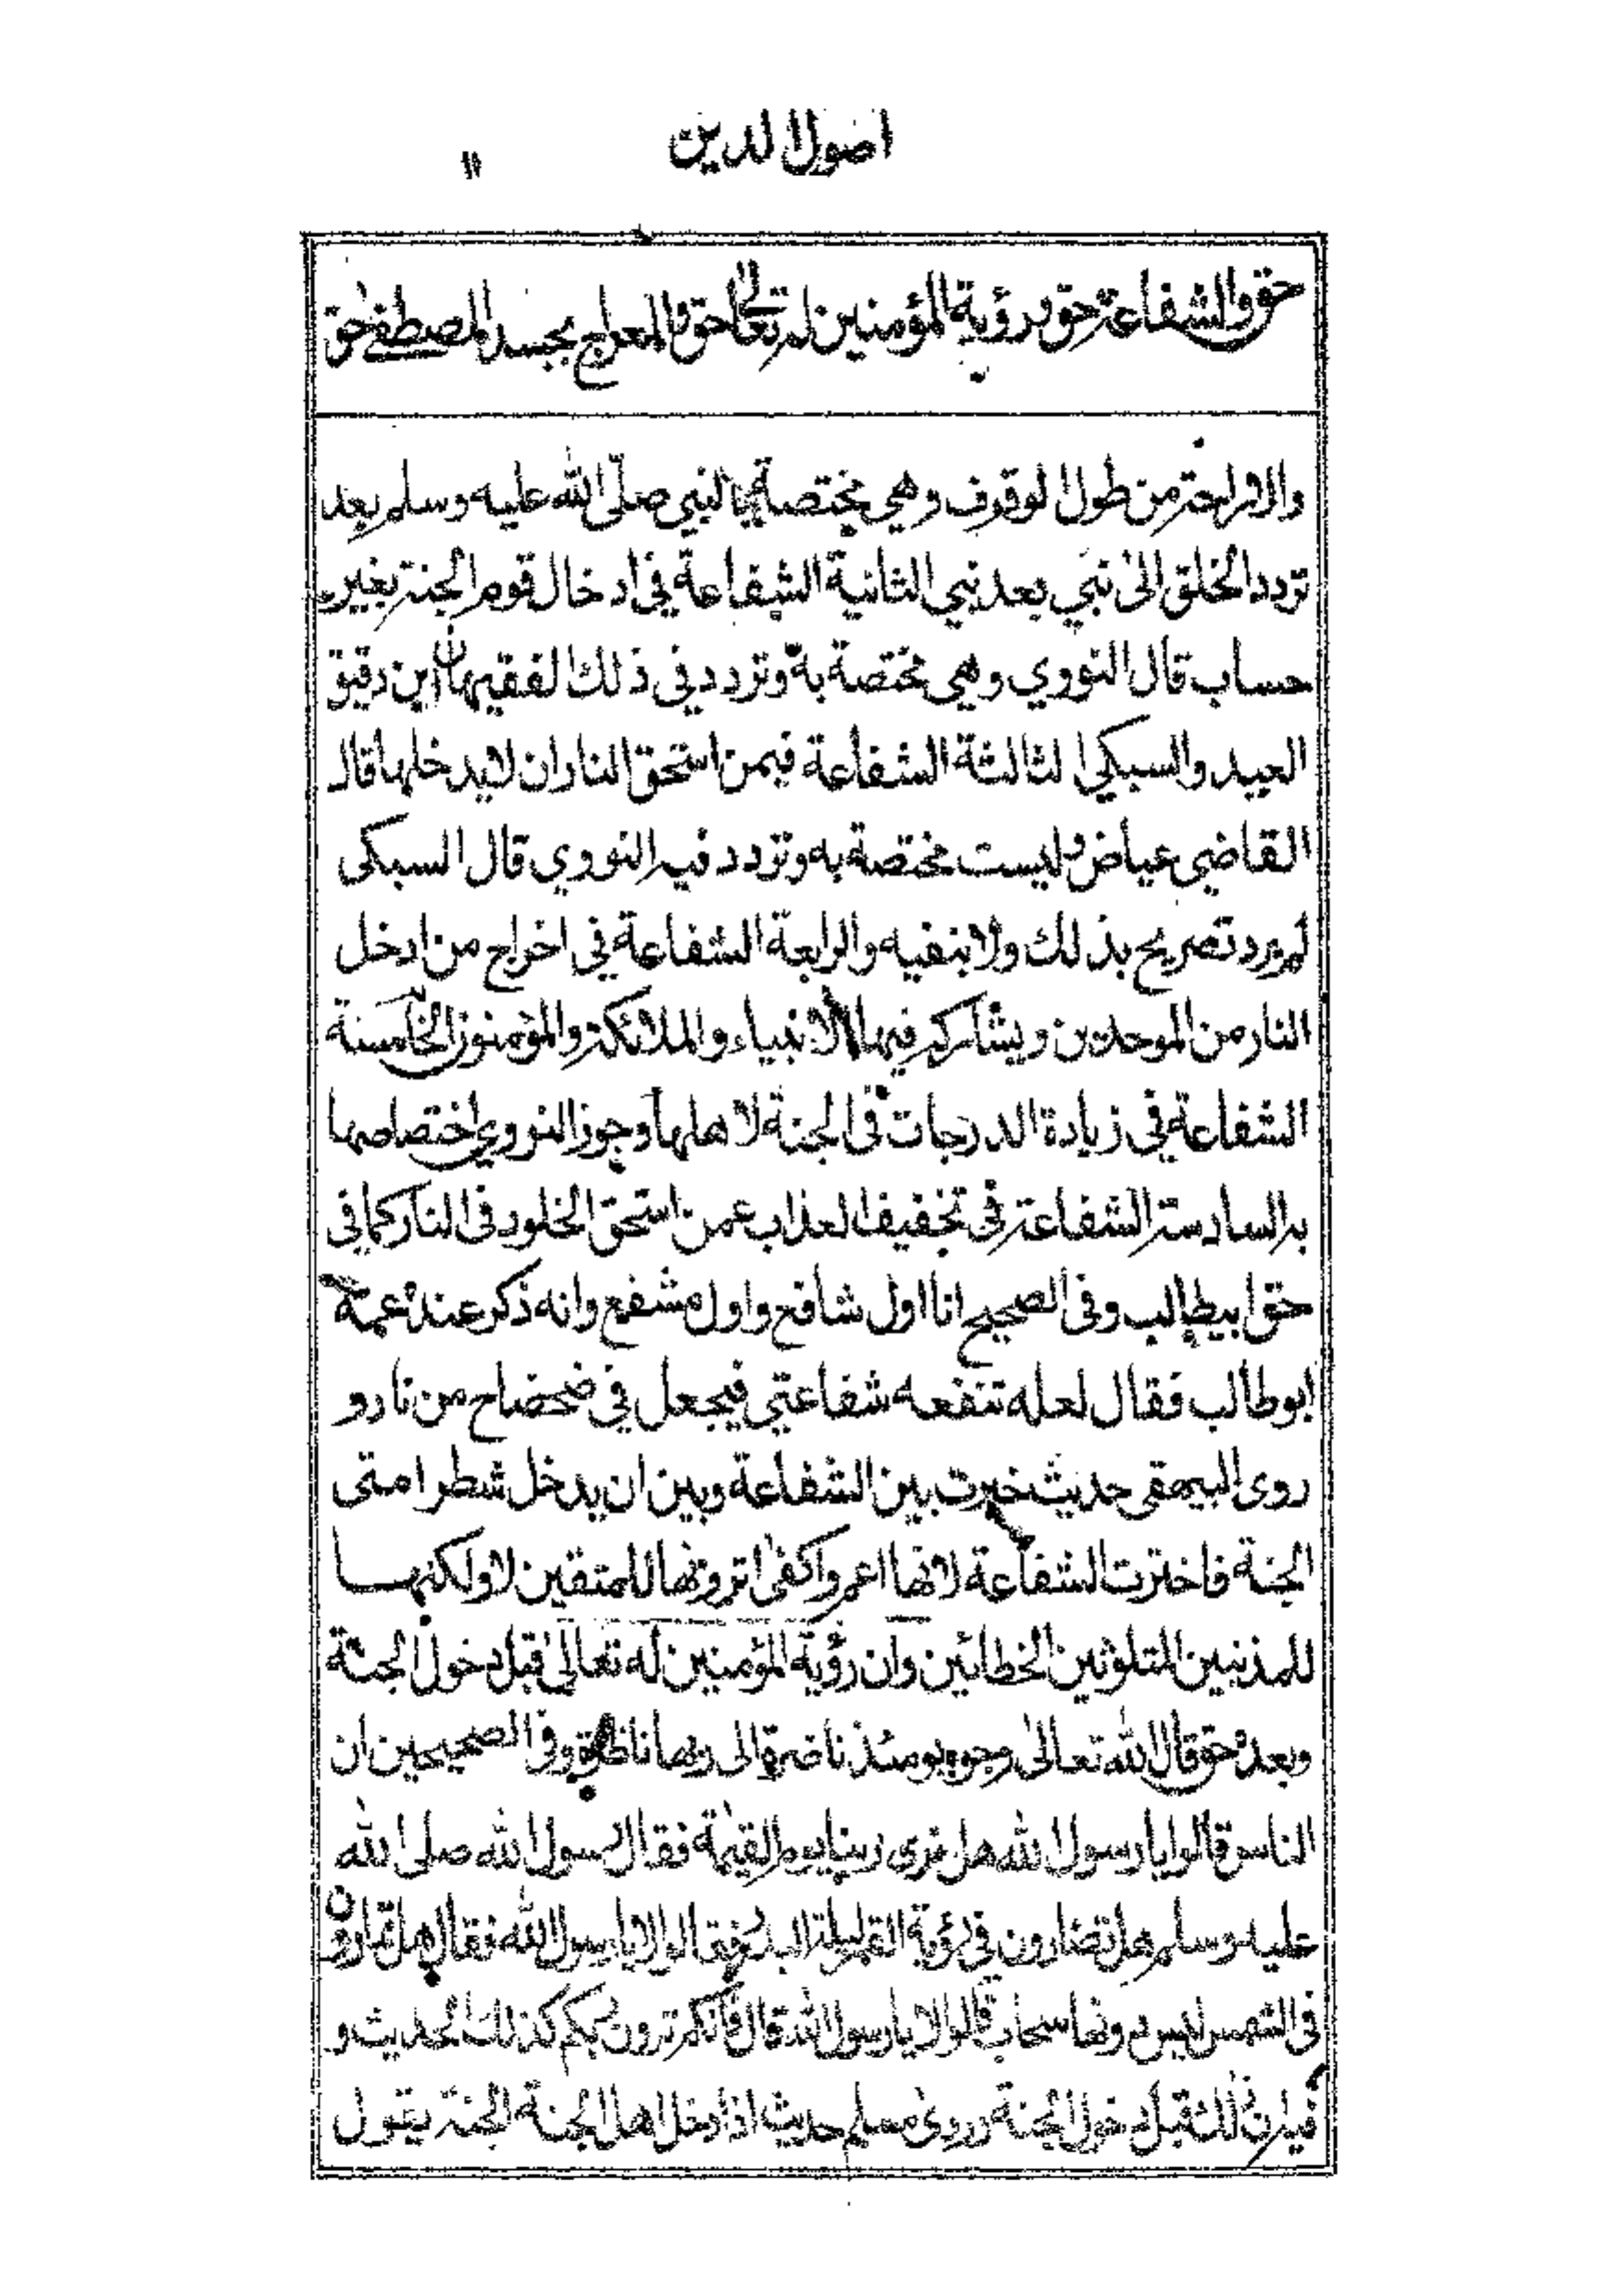 اصول الدين
١١
حق والشفاعة حق ورؤية المؤمنين له تعالى حق والمعراج بجسد المصطفى حق
والاراحة من طول الوقوف وهي مختصة بالنبي صلى الله عليه وسلم بعد
تردد الخلق الى نبي بعد نبي الثانية الشفاعة في ادخال قوم الجنة بغير
حساب قال النووي وهي مختصة به وتردد في ذلك الفقيهان ابن دقيق
العيد والسبكي الثالثة الشفاعة فيمن استحق النار ان لا يدخلها قال
القاضي عياض وليست مختصة به وتردد فيه النووي قال السبكى
لم يرد تصريح بذلك ولا بنفيه والرابعة الشفاعة في اخراج من ادخل
النار من الموحدين ويشاركه فيها الانبياء والملائكة والمؤمنون الخامسة
الشفاعة في زيادة الدرجات فى الجنة لاهلها وجوز النووي اختصاصها
به السادسة الشفاعة فى تخفيف العذاب عمن استحق الخلود فى النار كما في
حق ابيطالب وفى الصحيح انا اول شافع واول مشفع وانه ذكر عنده عمه
ابو طالب فقال لعله تنفعه شفاعتي فيجعل في ضحضاح من نار و
روى البيهقى حديث خيرت بين الشفاعة وبين ان يدخل شطر امتى
الجنة فاخترت الشفاعة لانها اعم واكفى اترونها للمتقين لا ولكنها
للمذنبين المتلوثين الخطائين وان رؤية المؤمنين له تعالى قبل دخول الجنة
وبعده حق قال الله تعالى وجوه يومئذ ناضرة الى ربها ناظرة وفى الصحيحين ان
الناس قالوا يا رسول الله هل نرى ربنا يوم القيمة فقال رسول الله صلى الله
عليه وسلم هل تضارون في رؤية القمر ليلة البدر فقالوا لا يا رسول الله فقال هل تمارون
فى الشمس ليس دونها سحاب قالوا لا يا رسول الله قال فانكم ترون ربكم كذلك الحديث و
فيه ان ذلك قبل دخول الجنة وروى مسلم حديث اذا دخل اهل الجنة الجنة يقول